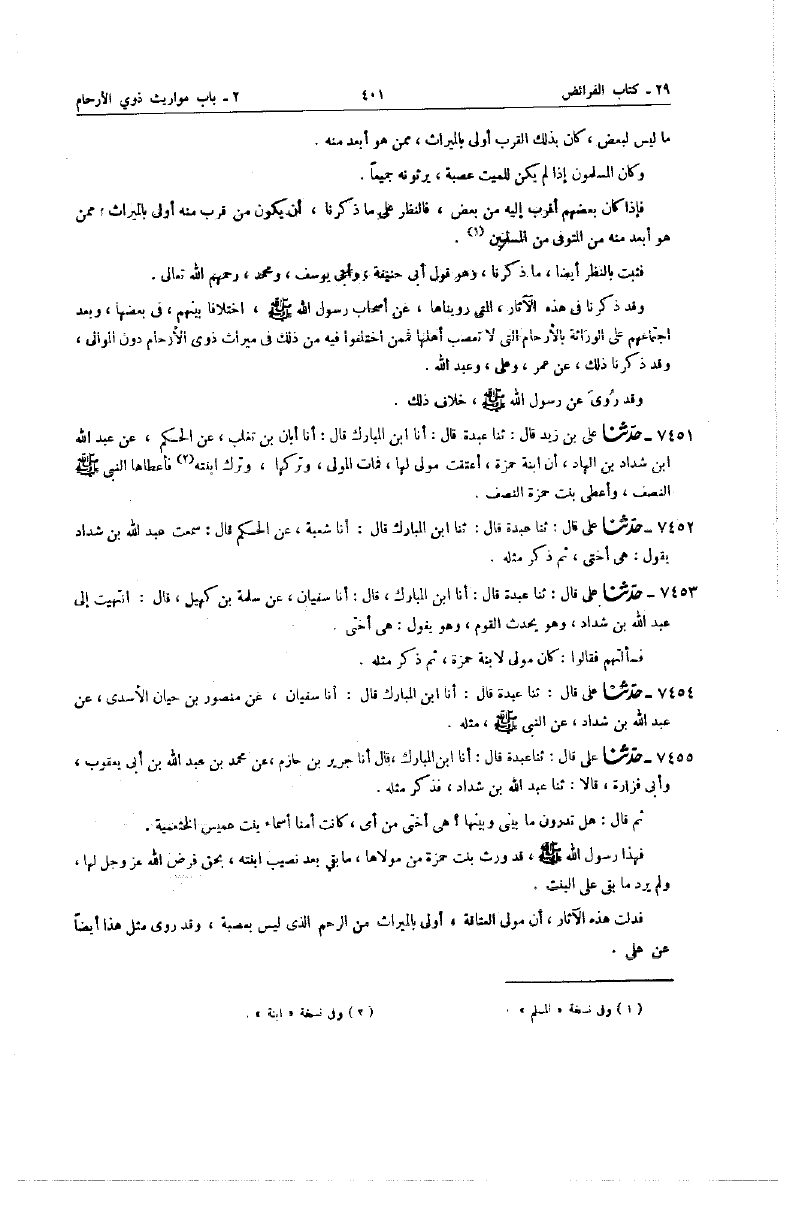 ٢٩ ـ كتاب الفرائض ٤٠١ ٢ ـ باب مواريث ذوي الأرحام
ما ليس لبعض ، كان بذلك القرب أولى بالميراث ، ممن هو أبعد منه .
وكان المسلمون إذا لم يكن للميت عصبة ، يرثونه جميعاً .
فإذا كان بعضهم أقرب إليه من بعض ، فالنظر على ما ذكرنا ، أن يكون من قرب منه أولى بالميراث ، ممن
هو أبعد منه من المتوفى من المسلمين (١) .
فثبت بالنظر أيضا ، ما ذكرنا ، وهو قول أبى حنيفة ، وأبى يوسف ، ومحمد ، رحمهم الله تعالى .
وقد ذكرنا فى هذه الآثار ، التى رويناها ، عن أصحاب رسول الله ﷺ ، اختلافا بينهم ، فى بعضها ، وبعد
اجتماعهم على الوراثة بالأرحام التى لا تعصب أهلها فمن اختلفوا فيه من ذلك فى ميراث ذوى الأرحام دون الموالى ،
وقد ذكرنا ذلك ، عن عمر ، وعلى ، وعبد الله .
وقد رُوىَ عن رسول الله ﷺ ، خلاف ذلك .
٧٤٥١ ـ حدّثنا على بن زيد قال : ثنا عبدة قال : أنا ابن المبارك قال : أنا أبان بن تغلب ، عن الحكم ، عن عبد الله
ابن شداد بن الهاد ، أن ابنة حمزة ، أعتقت مولى لها ، فمات المولى ، وتركها ، وترك ابنته (٢) فأعطاها النبى ﷺ
النصف ، وأعطى بنت حمزة النصف .
٧٤٥٢ ـ حدّثنا على قال : ثنا عبدة قال : ثنا ابن المبارك قال : أنا شعبة ، عن الحكم قال : سمعت عبد الله بن شداد
يقول : هى أختى ، ثم ذكر مثله .
٧٤٥٣ ـ حدّثنا على قال : ثنا عبدة قال : أنا ابن المبارك ، قال : أنا سفيان ، عن سلمة بن كهيل ، قال : انتهيت إلى
عبد الله بن شداد ، وهو يحدث القوم ، وهو يقول : هى أختى .
فسألتهم فقالوا : كان مولى لابنة حمزة ، ثم ذكر مثله .
٧٤٥٤ ـ حدّثنا على قال : ثنا عبدة قال : أنا ابن المبارك قال : أنا سفيان ، عن منصور بن حيان الأسدى ، عن
عبد الله بن شداد ، عن النبى ﷺ ، مثله .
٧٤٥٥ ـ حدّثنا على قال : ثنا عبدة قال : أنا ابن المبارك ، قال أنا جرير بن حازم ، عن محمد بن عبد الله بن أبى يعقوب ،
وأبى فزارة ، قالا : ثنا عبد الله بن شداد ، فذكر مثله .
ثم قال : هل تدرون ما بينى وبينها ؟ هى أختى من أمى ، كانت أمنا أسماء بنت عميس الخثعمية .
فهذا رسول الله ﷺ ، قد ورث بنت حمزة من مولاها ، ما بقي بعد نصيب ابنته ، بحق فرض الله عز وجل لها ،
ولم يرد ما بقى على البنت .
فدلت هذه الآثار ، أن مولى العتاقة ، أولى بالميراث من الرحم الذى ليس بعصبة ، وقد روى مثل هذا أيضاً
عن على .
(١) وفى نسخة « المسلم » . (٢) وفى نسخة « ابنة » .